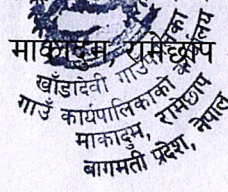 माकादुम, रामेछाप
खाँडादेवी गाउँपालिका
गाउँ कार्यपालिकाको कार्यालय
माकादुम, रामेछाप
बागमती प्रदेश, नेपाल